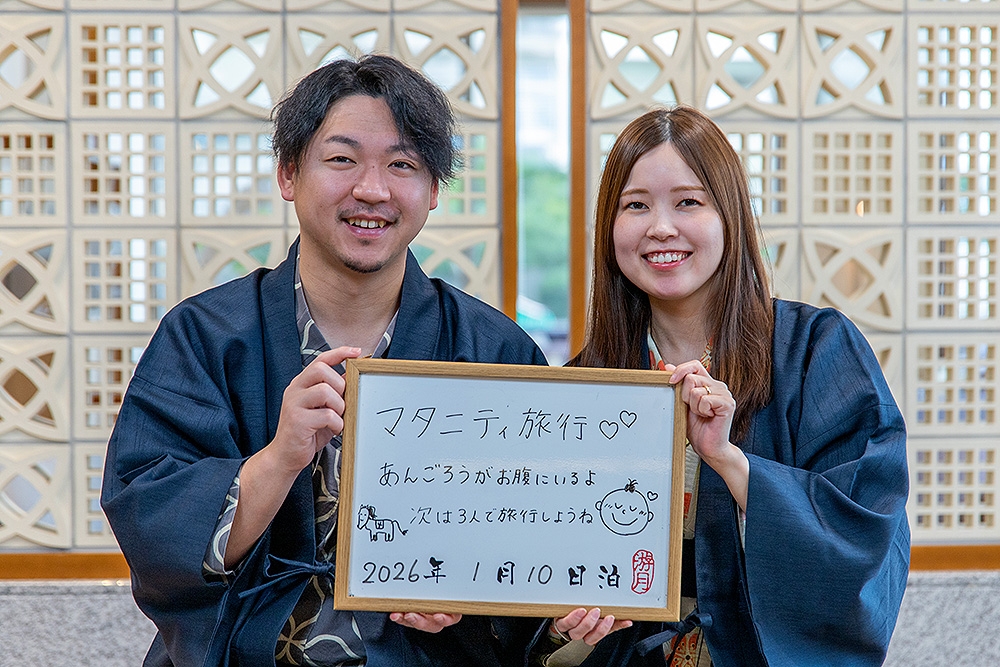 マタニティ旅行♡♡
あんごろうがお腹にいるよ
次は3人で旅行しようね
2026年 1月10日泊
游月